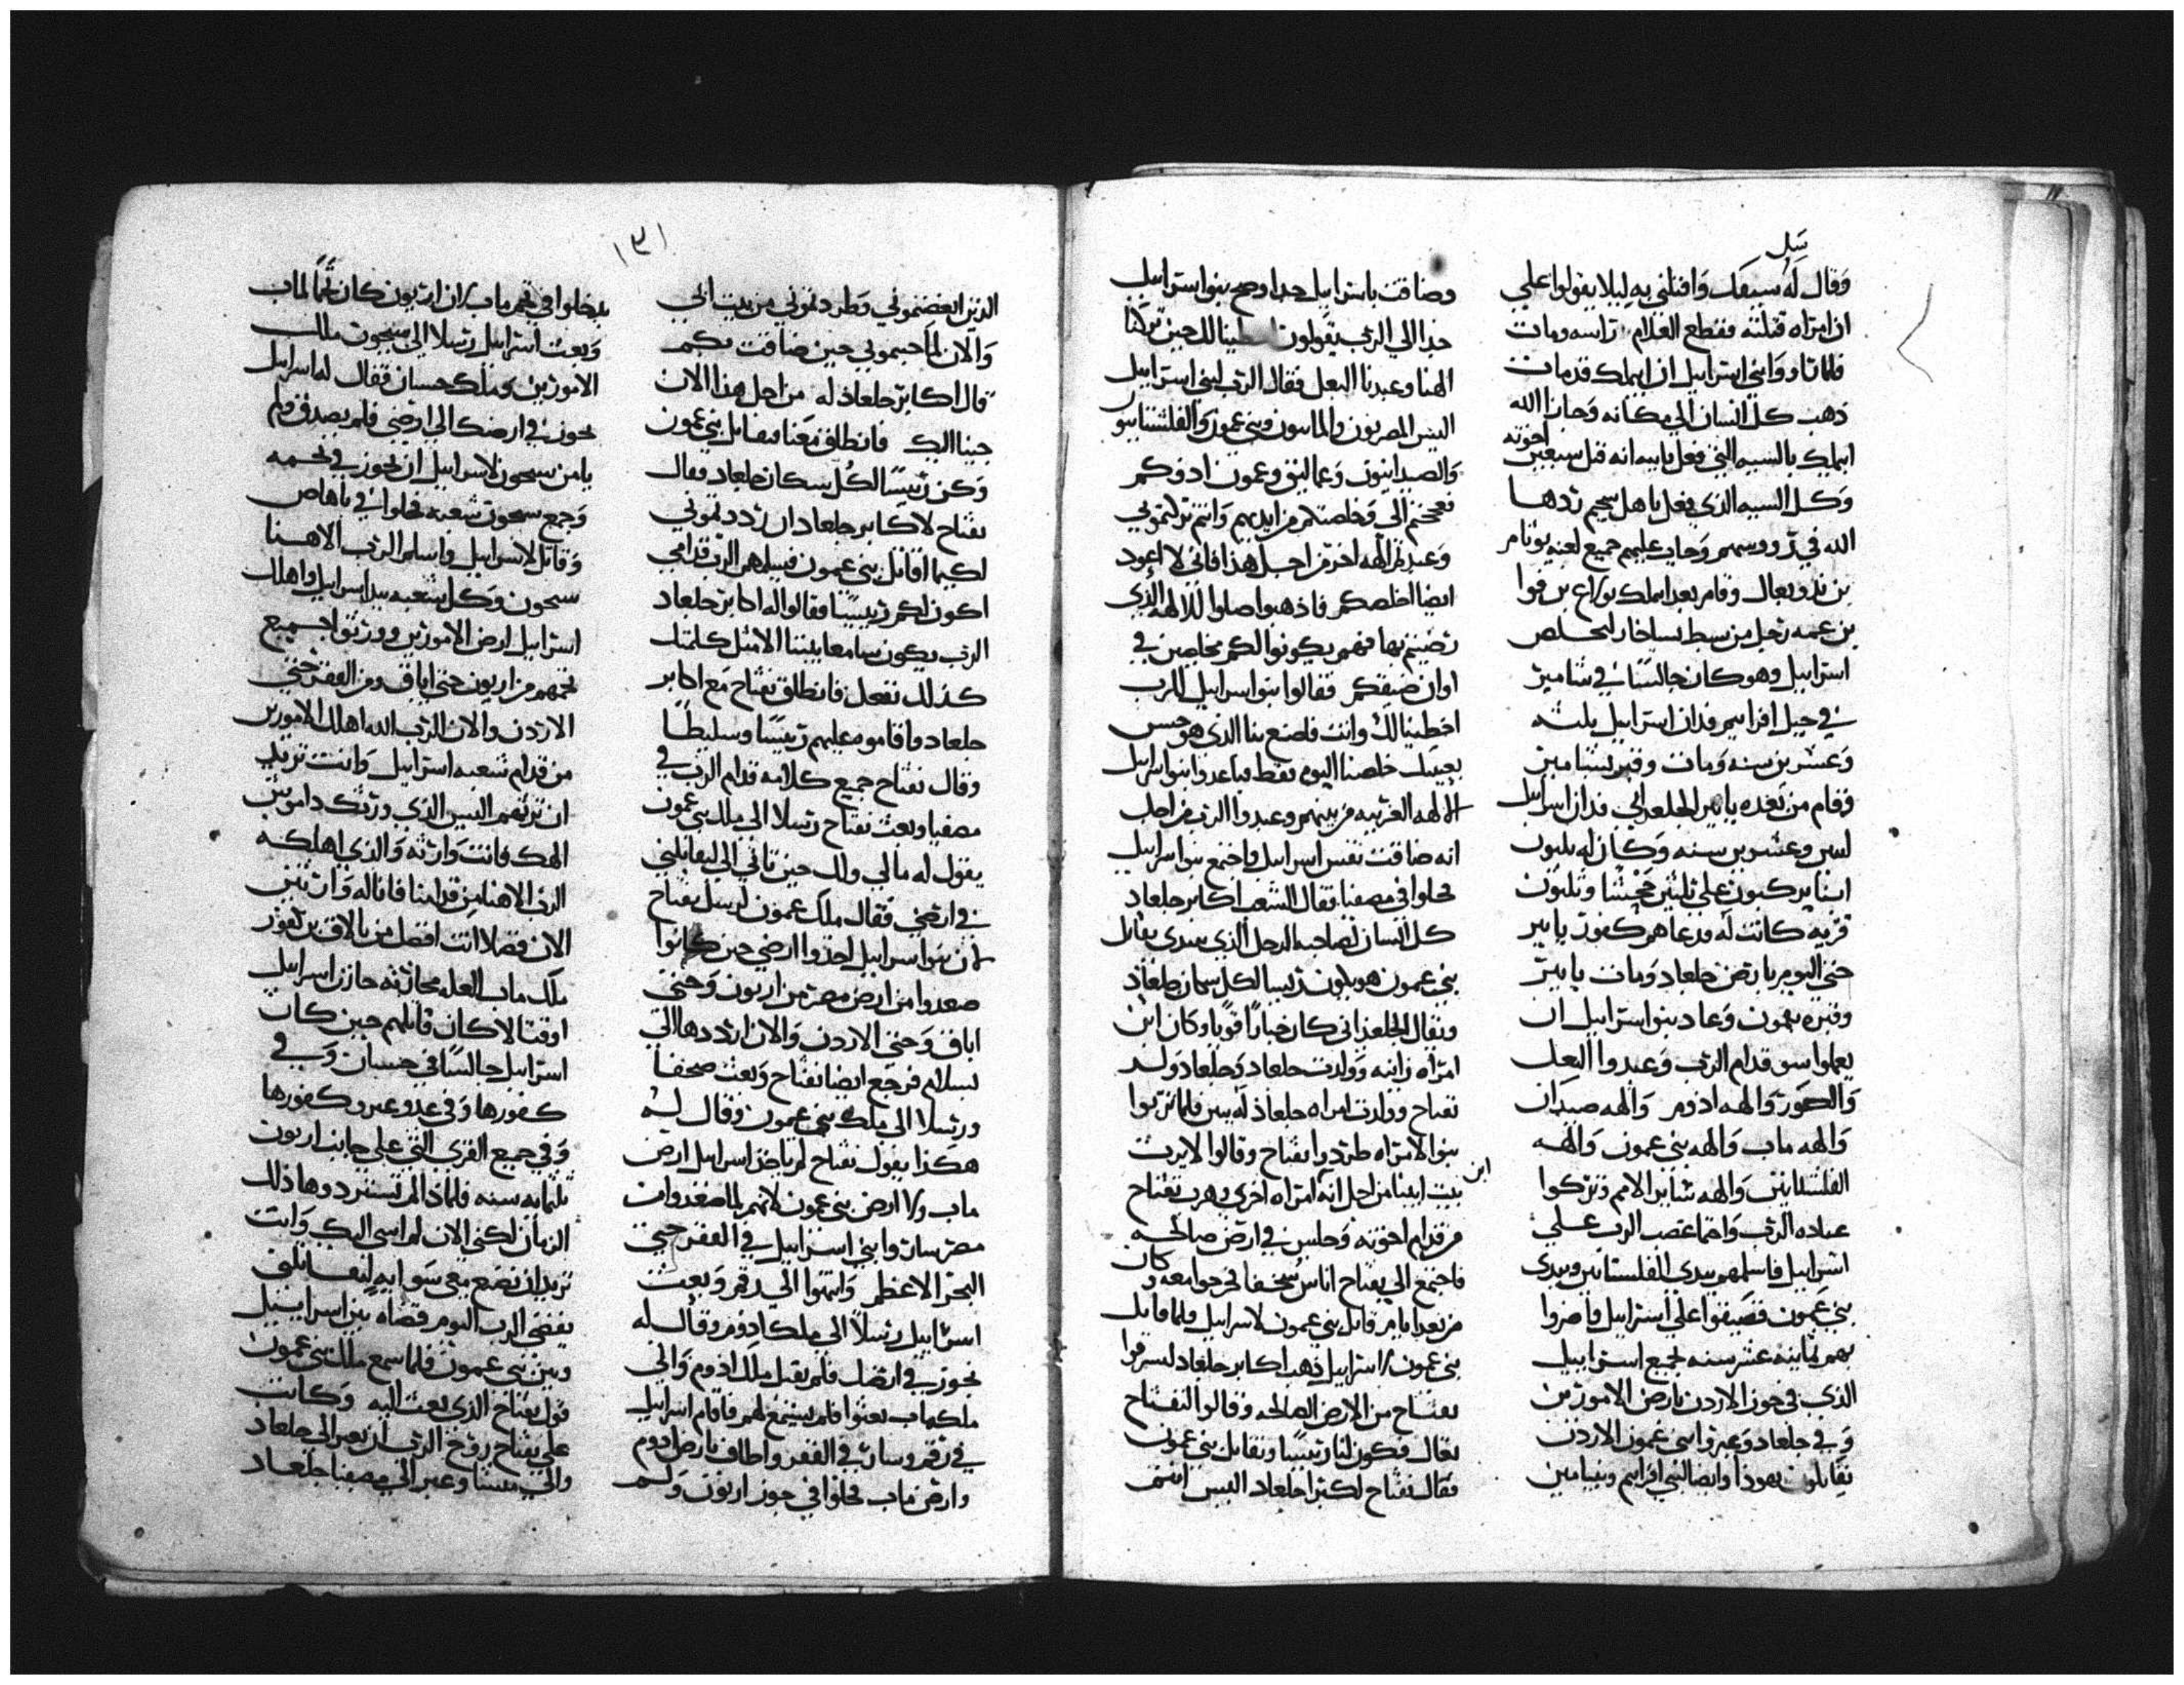 سل
وقال له سيفك واقتلني به ليلا يقولوا علي
ان امراه قتلته فقطع الغلام راسه ومات
فلما راوا بني اسراييل ان ابيملك قد مات
ذهب كل انسان الي مكانه وجازا الله
ابيملك بالسيه التي فعل بابيه انه قتل سبعين اخوته
وكل السيه الذي فعل باهل سجيم ردها
الله في رووسهم وحات عليهم جميع لعنه يوثام
بن يدوبعال وقام بعد ابيملك تولع بن فوا
بن عمه رجل من سبط يساخار ليخلص
اسراييل وهو كان جالسا في شامير
في جبل افراسيم فدان اسراييل ثلثه
وعشرين سنه ومات وقبر بشامير
وقام من بعده يايير الجلعدي فدان اسراييل
اثنين وعشرين سنه وكان له ثلثون
ابنا يركبون علي ثلثين جحشا وثلثون
قريه كانت له فدعاهم كفور يايير
حتي اليوم بارض جلعاد ومات يايير
وقبره بقمون وعاد بنو اسراييل ان
يعملوا سو قدام الرب وعبدوا البعل
والصور والهه ادوم والهه صيدان
والهه ماب والهه بني عمون والهه
الفلسطانيين والهه ساير الامم وتركوا
عباده الرب واحما غضب الرب علي
اسراييل فاسلمهم بيدي الفلسطانيين وبيدي
بني عمون فضيقوا علي اسراييل واضروا
بهم ثمانيه عشر سنه لجميع اسراييل
الذي في حوز الاردن بارض الاموريين
وفي جلعاد وعبروا بني عمون الاردن
يقاتلون يهوذا وايضا لبني افرايم وبنيامين
وضاقت باسراييل جدا وصح بنو اسراييل
جدا الي الرب يقولون اخطينا لك حين تركنا
الهنا وعبدنا البعل فقال الرب لبني اسراييل
اليس المصريون والمابيون وبني عمون والفلسطانيون
والصيدانيون وعماليق وعمون اذوكم
فصحتم الي وخلصتكم من ايديهم وانتم تركتموني
وعبدتم الهه اخر من اجل هذا فاني لا اعود
ايضا اخلصكم فاذهبوا صلوا للالهه الذي
رضيتم بها فهم يكونوا لكم مخلصين في
اوان ضيقكم فقالوا بنو اسراييل للرب
اخطينا لك وانت فاصنع بنا الذي هو حسن
بعينيك خلصنا اليوم فقط فباعدوا بنو اسراييل
الالهه الغريبه من بينهم وعبدوا الرب من اجل
انه ضاقت نفس اسراييل فاجتمع بنو اسراييل
فحلوا في مصفيا فقال الشعب اكابر جلعاد
كل انسان لصاحبه الرجل الذي يبتدي يقاتل
بني عمون هو يكون رييسا لكل سكان جلعاد
ونفتاح الجلعداني كان جبارا قويا وكان ابن
امراه زانيه وولدت جلعاد وجلعاد ولد
نفتاح وولدت امراه جلعاد له بنين فلما تربوا
بنو الامراه طردوا نفتاح وقالوا لا يرث
بيت ابينا من اجل انه ابن امراه اخري وهرب نفتاح
من قدام اخوته وجلس في ارض صالحه
فاجتمع الي نفتاح اناس سخفا في جوامعه وكان
من بعد ايام قاتل بني عمون لاسراييل فلما قاتل
بني عمون لاسراييل ذهب اكابر جلعاد ليسرقوا
نفتاح من الارض الصالحه وقالوا لنفتاح
تعال فتكون لنا رييسا ونقاتل بني عمون
فقال نفتاح لكبرا جلعاد اليس انتم
١٣١
الذين ابغضتموني وطردتموني من بيت ابي
والان لما جيتموني حين ضاقت بكم
قال اكابر جلعاد له من اجل هذا الان
جينا اليك فانطلق معنا فنقاتل بني عمون
وكن رييسا لكل سكان جلعاد فقال
نفتاح لاكابر جلعاد ان رددتموني
لكيما اقاتل بني عمون فيسلمهم الرب قدامي
اكون لكم رييسا فقالوا له اكابر جلعاد
الرب يكون سامعا بيننا الا مثل كلمتك
كذلك نفعل فانطلق نفتاح مع اكابر
جلعاد فاقاموه عليهم رييسا وسليطا
وقال نفتاح جميع كلامه قدام الرب في
مصفيا وبعث نفتاح رسلا الي ملك بني عمون
يقول له مالي ولك حين تاتي الي ليقاتلني
في ارضي فقال ملك عمون لرسل نفتاح
لان بنو اسراييل اخذوا ارضي حين كانوا
صعدوا من ارض مصر من ارنون وحتي
اباق وحتي الاردن والان ارددها الي
بسلام فرجع ايضا نفتاح وبعث صحفا
ورسلا الي ملك بني عمون وقال له
هكذا يقول نفتاح لم ياخذ اسراييل ارض
ماب ولا ارض بني عمون لانهم لما صعدوا من
مصر سار وابني اسراييل في القفر حتي
البحر الاعظم وانتهوا الي رقم وبعث
اسراييل رسلا الي ملك ادوم وقال له
نجوز في ارضك فلم يقبل ملك ادوم والي
ملك ماب بعثوا فلم يسمع لهم فاقام اسراييل
في رقم وسار في القفر واطاف بارض ادوم
وارض ماب فحلوا في حوز ارنون ولم
يدخلوا في تخم ماب لان ارنون كان تخما لماب
وبعث اسراييل رسلا الي سيحون ملك
الاموريين وملك حسبان فقال له اسراييل
نجوز في ارضك الي ارضي فلم يصدق ولم
يامن سيحون لاسراييل ان يجوز في تخمه
وجمع سيحون شعبه فحلوا في ياهاص
وقاتل لاسراييل واسلم الرب الاهنا
سيحون وكل شعبه بيد اسراييل واهلك
اسراييل ارض الاموريين وورثوا جميع
تخمهم من ارنون حتي اباق ومن القفر حتي
الاردن والان الرب الله اهلك الاموريين
من قدام شعبه اسراييل وانت تريد
ان ترثهم اليس الذي ورثك داموش
الهك فانت وارثه والذي اهلكه
الرب الاهنا من قدامنا فاناله وارثين
الان فضلا انت افضل من بالاق بن صفور
ملك ماب العله محاربه حارب اسراييل
او قتالا كان قاتلهم حين كان
اسراييل جالسا في حسبان وفي
كفورها وفي عدوعير وكفورها
وفي جميع القري التي علي جانب ارنون
ثلثمايه سنه فلماذا لم تسترددها ذلك
الزمان لكني الان لم اسي اليك وانت
تريد ان تصنع معي سوايه لتقاتلني
يقضي الرب اليوم قضاه بين اسراييل
وبين بني عمون فلما سمع ملك بني عمون
قول نفتاح الذي بعث اليه وكانت
علي نفتاح روح الرب ان يعبر الي جلعاد
والي منسا وعبر الي مصفيا جلعاد